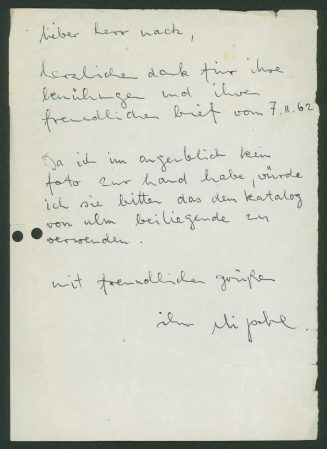 lieber herr mack,
herzlichen dank für ihre
bemühungen und ihren
freundlichen brief vom 7.11.62
Da ich im augenblick kein
foto zur hand habe, würde
ich sie bitten das dem katalog
von ulm beiliegende zu
verwenden.
mit freundlichen grüßen
ihr